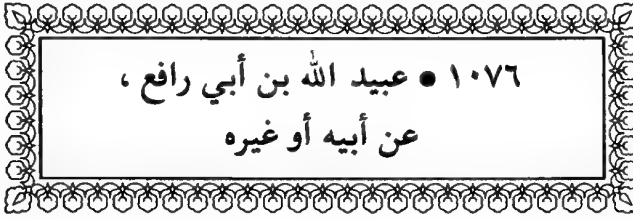 ١٠٧٦ • عبيد الله بن أبي رافع ،
عن أبيه أو غيره